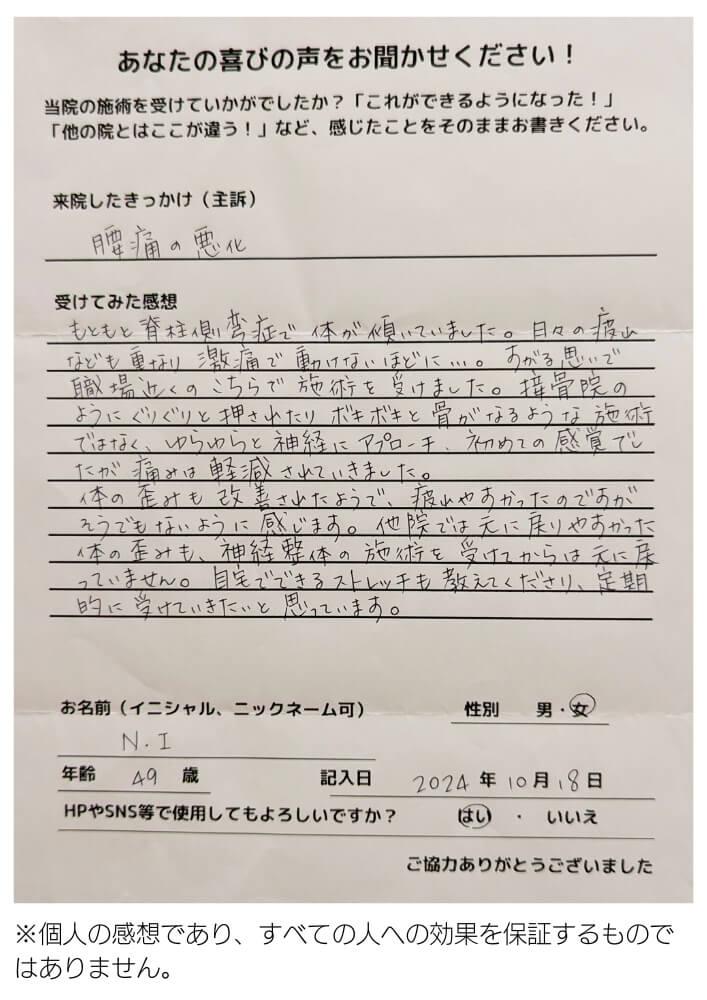 あなたの喜びの声をお聞かせください！
当院の施術を受けていかがでしたか？「これができるようになった！」
「他の院とはここが違う！」など、感じたことをそのままお書きください。
来院したきっかけ（主訴）
腰痛の悪化
受けてみた感想
もともと脊柱側弯症で体が傾いていました。日々の疲れ
なども重なり激痛で動けないほどに…。すがる思いで
職場近くのこちらで施術を受けました。接骨院の
ようにぐりぐりと押されたりボキボキと骨がなるような施術
ではなく、ゆらゆらと神経にアプローチ、初めての感覚でし
たが痛みは軽減されていきました。
体の歪みも改善されたようで、疲れやすかったのですが
そうでもないように感じます。他院では元に戻りやすかった
体の歪みも、神経整体の施術を受けてからは元に戻
っていません。自宅でできるストレッチも教えてくださり、定期
的に受けていきたいと思っています。
お名前（イニシャル、ニックネーム可） 性別 男・女
N.I
年齢 49 歳 記入日 2024年10月18日
HPやSNS等で使用してもよろしいですか？ はい ・ いいえ
ご協力ありがとうございました
※個人の感想であり、すべての人への効果を保証するもので
はありません。